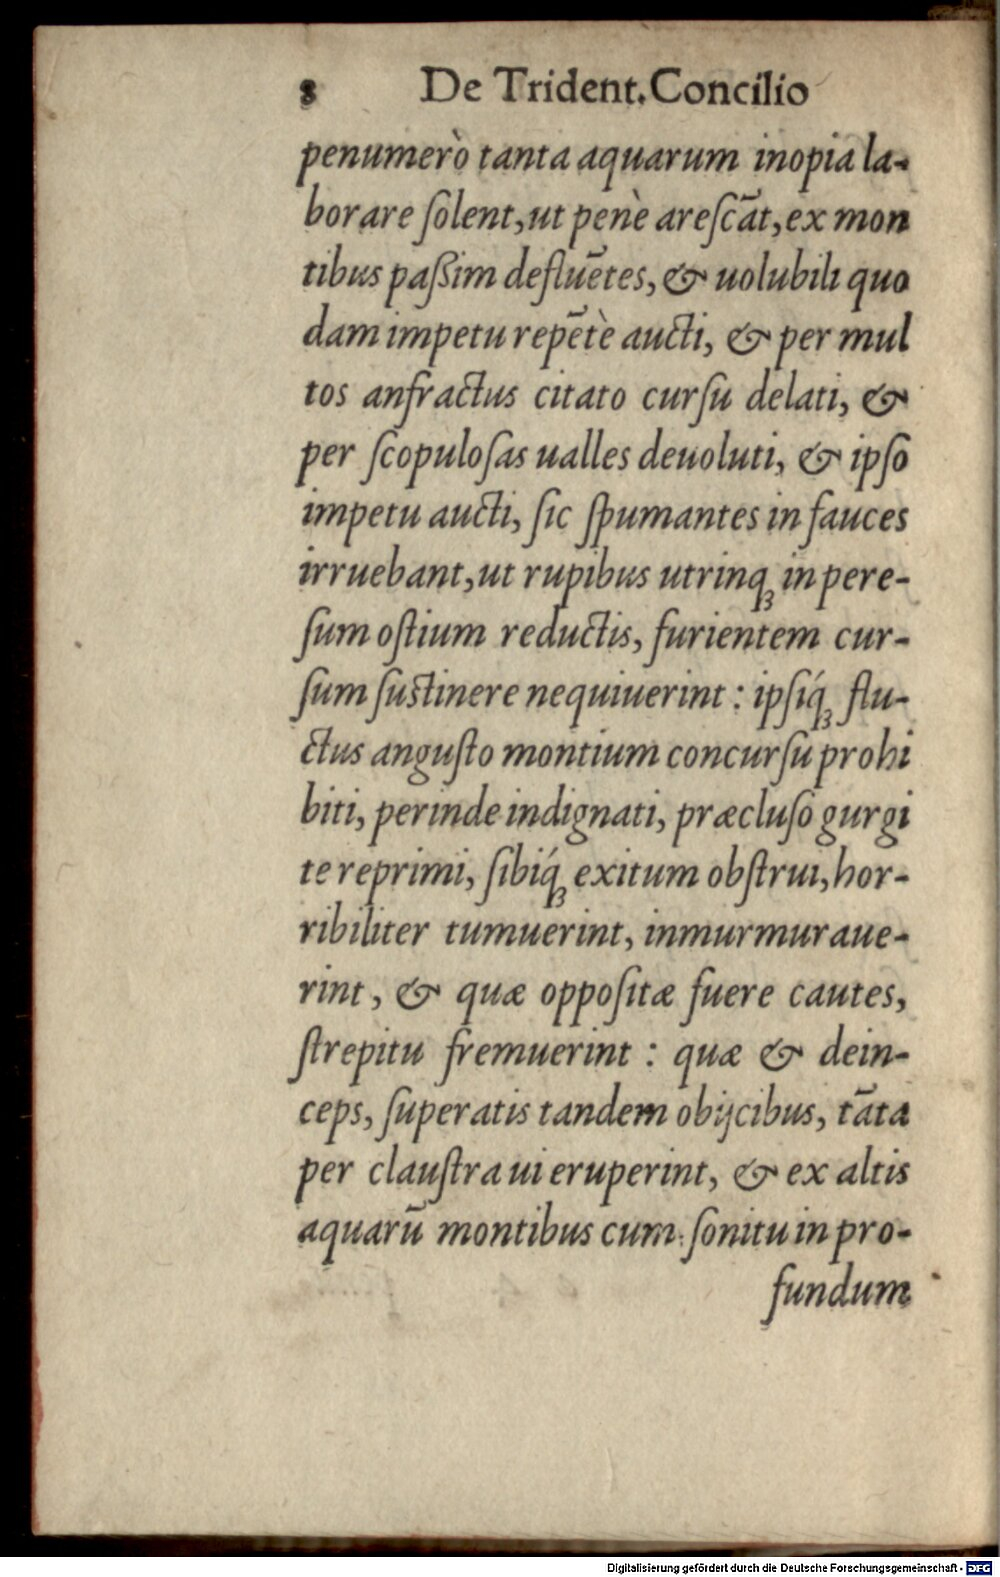 8 De Trident. Concilio
penumerò tanta aquarum inopia la-
borare ſolent, ut penè areſcāt, ex mon
tibus paßim defluētes, & uolubili quo
dam impetu repētè aucti, & per mul
tos anfractus citato curſu delati, &
per ſcopuloſas ualles deuoluti, & ipſo
impetu aucti, ſic ſpumantes in fauces
irruebant, ut rupibus utrinqꝫ in pere-
ſum oſtium reductis, furientem cur-
ſum ſuſtinere nequiuerint: ipſiq́ꝫ flu-
ctus anguſto montium concurſu prohi
biti, perinde indignati, præcluſo gurgi
te reprimi, ſibiq́ꝫ exitum obſtrui, hor-
ribiliter tumuerint, inmurmuraue-
rint, & quæ oppoſitæ fuere cautes,
ſtrepitu fremuerint: quæ & dein-
ceps, ſuperatis tandem obijcibus, tāta
per clauſtra ui eruperint, & ex altis
aquarū montibus cum ſonitu in pro-
fundum
Digitalisierung gefördert durch die Deutsche Forschungsgemeinschaft - DFG